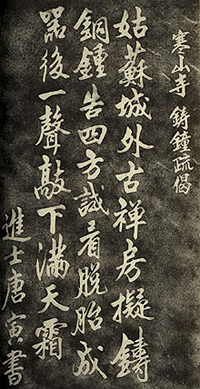 寒山寺 鋳鐘疏偈
姑蘇城外古禅房擬鑄
銅鍾告四方試看脱胎成
器後一聲敲下滿天霜
進士唐寅書